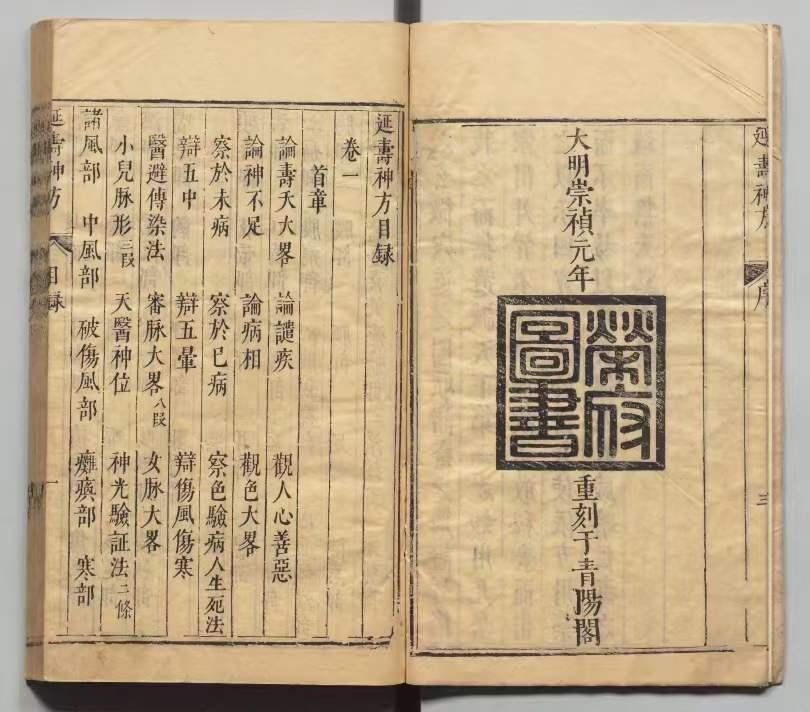 延壽神方 序 三
大明崇禎元年
榮府圖書
重刻于青陽閣
延壽神方目録
卷一
首章
論壽夭大畧 論譴疾 觀人心善惡
論神不足 論病相 觀色大畧
察於未病 察於已病 察色驗病人生死法
辯五中 辯五暈 辯傷風傷寒
醫避傳染法 審脉大畧八段 女脉大畧
小兒脉形三段 天醫神位 神光驗証法二條
諸風部 中風部 破傷風部 癱瘓部 寒部
延壽神方 目録 一